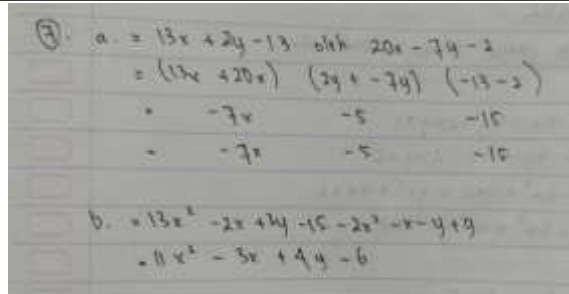 7. a. = 13x + 2y - 13 oleh 20x - 7y - 2
= (13x + 20x) (2y + -7y) (-13 - 2)
= -7x -5 -15
= -7x -5 -15
b. = 13x² - 2x + 3y - 15 - 2x² - x - y + 9
= 11x² - 3x + 4y - 6